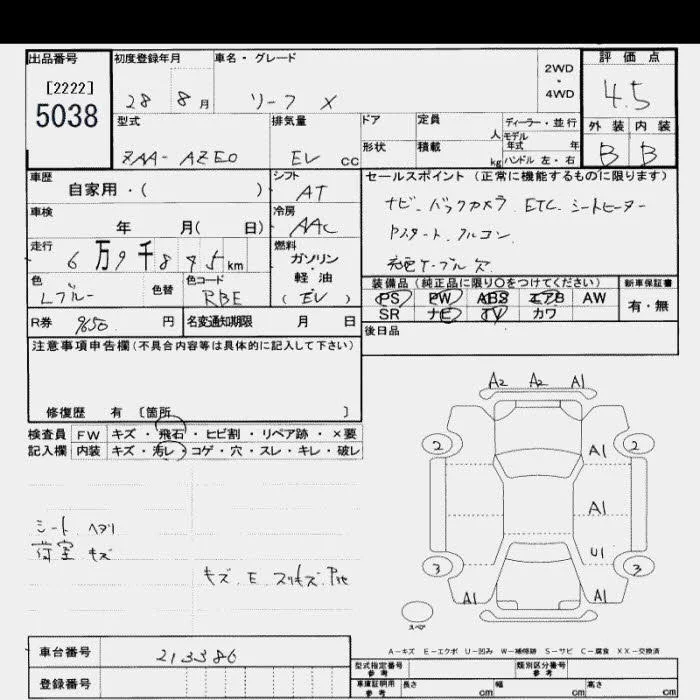 出品番号 初度登録年月 車名・グレード 2WD・4WD 評価点
[2222]
5038
28 8月 リーフ X 4.5
型式 排気量 ドア 定員 人 ディーラー・並行 外装 内装
モデル年式 年
ZAA-AZE0 EV cc 形状 積載 kg ハンドル 左・右 B B
車歴 シフト セールスポイント (正常に機能するものに限ります)
自家用・( ) AT
ナビ. バックカメラ. ETC. シートヒーター
車検 冷房
年 月( 日) AAC
Pスタート. アルコン.
走行 燃料
6万9千845km ガソリン・軽油
充電ケーブル欠
色 色替 色コード
Lブルー RBE (EV)
装備品 (純正品に限り○をつけてください) 新車保証書
PS PW ABS エアB AW 有・無
SR ナビ TV カワ
R券 9650 円 名変通知期限 月 日
後日品
注意事項申告欄(不具合内容等は具体的に記入して下さい)
修復歴 有 〔箇所 〕
検査員 FW キズ・飛石・ヒビ割・リペア跡・×要
記入欄 内装 キズ・汚レ・コゲ・穴・スレ・キレ・破レ
A2 A2 A1
2 A1 2
A1
U1
3 3
A1 A1
シート ヘタリ
荷室 キズ
キズ. E. スリキズ.
スペア
A-キズ E-エクボ U-凹み W-補修跡 S-サビ C-腐食 XX-交換済
車台番号 213386
型式指定番号 参考 類別区分番号 参考
登録番号
車庫証明用 参考 長さ cm 幅 cm 高さ cm